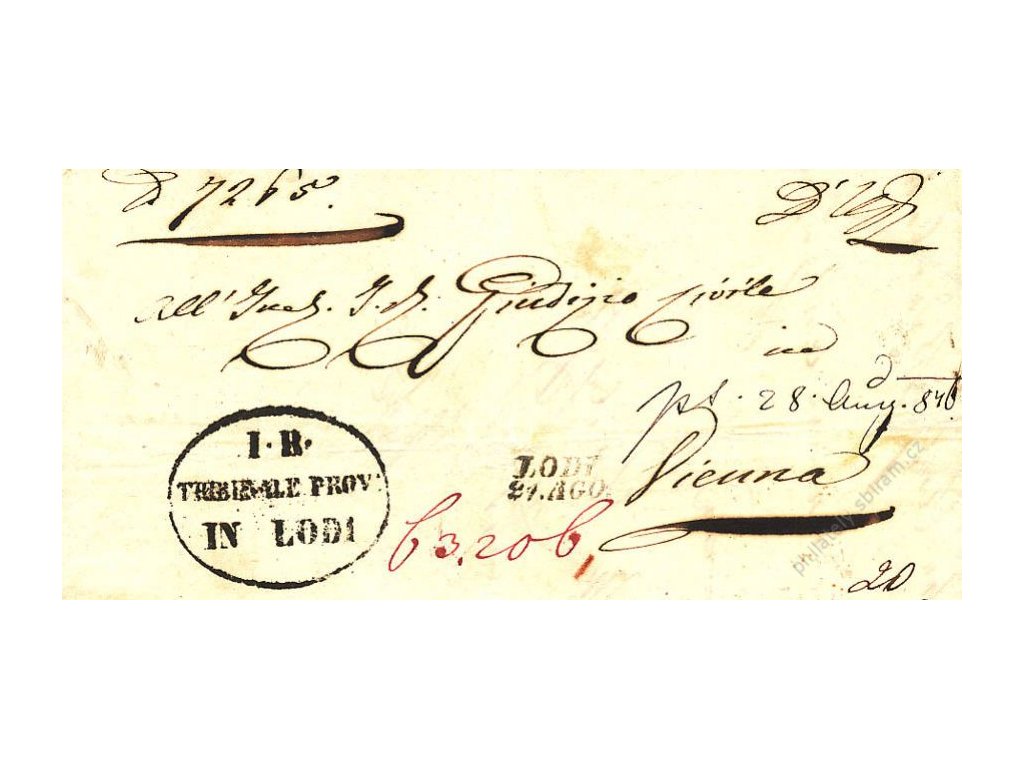 N. 7265.
D'Uff
All' Incl. I. R. Giudizio Civile
in
ps. 28. Aug. 846
Vienna
I. R.
TRIBUNALE PROV.
IN LODI
LODI
21. AGO.
63,206,
20
philately.sbiram.cz